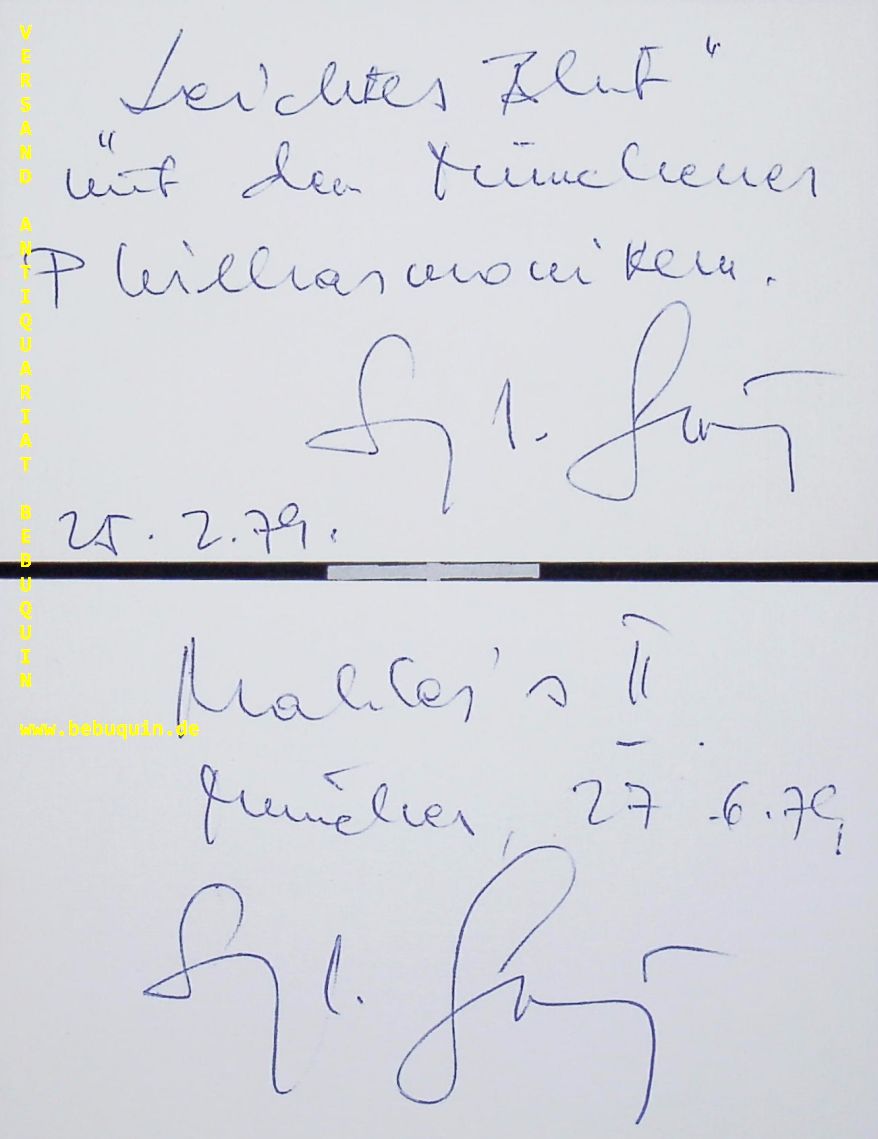 „Leichtes Blut“
mit den Münchener
Philharmonikern.
25.2.79.
Mahler's II.
München, 27.6.79,
VERSAND ANTIQUARIAT BEBUQUIN
www.bebuquin.de